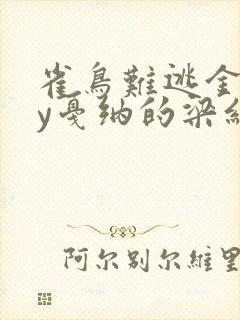 雀鳥難逃金
y戛纳的梁組
阿尔别尔維里